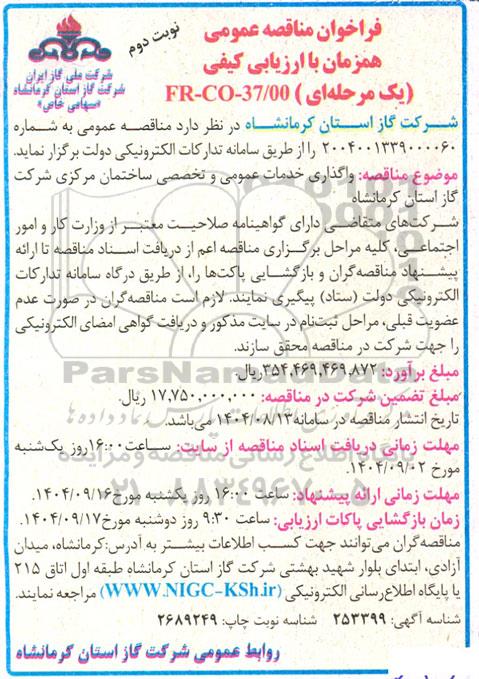 فراخوان مناقصه عمومی
نوبت دوم
همزمان با ارزیابی کیفی
(یک مرحله‌ای) FR-CO-37/00
شرکت ملی گاز ایران
شرکت گاز استان کرمانشاه
«سهامی خاص»
شرکت گاز استان کرمانشاه در نظر دارد مناقصه عمومی به شماره
۲۰۰۴۰۰۱۳۳۹۰۰۰۰۶۰ را از طریق سامانه تدارکات الکترونیکی دولت برگزار نماید.
موضوع مناقصه: واگذاری خدمات عمومی و تخصصی ساختمان مرکزی شرکت
گاز استان کرمانشاه
شرکت‌های متقاضی دارای گواهینامه صلاحیت معتبر از وزارت کار و امور
اجتماعی، کلیه مراحل برگزاری مناقصه اعم از دریافت اسناد مناقصه تا ارائه
پیشنهاد مناقصه‌گران و بازگشایی پاکت‌ها را، از طریق درگاه سامانه تدارکات
الکترونیکی دولت (ستاد) پیگیری نمایند. لازم است مناقصه‌گران در صورت عدم
عضویت قبلی، مراحل ثبت‌نام در سایت مذکور و دریافت گواهی امضای الکترونیکی
را جهت شرکت در مناقصه محقق سازند.
مبلغ برآورد: ۳۵۴,۴۶۹,۴۶۹,۸۷۲ریال.
مبلغ تضمین شرکت در مناقصه: ۱۷,۷۵۰,۰۰۰,۰۰۰ ریال.
تاریخ انتشار مناقصه در سامانه ۱۴۰۴/۰۸/۱۳ می‌باشد.
مهلت زمانی دریافت اسناد مناقصه از سایت: ساعت ۱۶:۰۰ روز یک‌شنبه
مورخ ۱۴۰۴/۰۹/۰۲.
مهلت زمانی ارائه پیشنهاد: ساعت ۱۶:۰۰ روز یکشنبه مورخ ۱۴۰۴/۰۹/۱۶.
زمان بازگشایی پاکات ارزیابی: ساعت ۹:۳۰ روز دوشنبه مورخ ۱۴۰۴/۰۹/۱۷.
مناقصه‌گران می‌توانند جهت کسب اطلاعات بیشتر به آدرس:کرمانشاه، میدان
آزادی، ابتدای بلوار شهید بهشتی شرکت گاز استان کرمانشاه طبقه اول اتاق ۲۱۵
یا پایگاه اطلاع‌رسانی الکترونیکی (WWW.NIGC-KSh.ir) مراجعه نمایند.
شناسه آگهی: ۲۵۳۳۹۹ شناسه نوبت چاپ: ۲۶۸۹۲۴۹
روابط عمومی شرکت گاز استان کرمانشاه
ParsNamadData
پایگاه اطلاع رسانی مناقصه و مزایده
۰۲۱-۸۸۳۴۹۶۷۰-۵